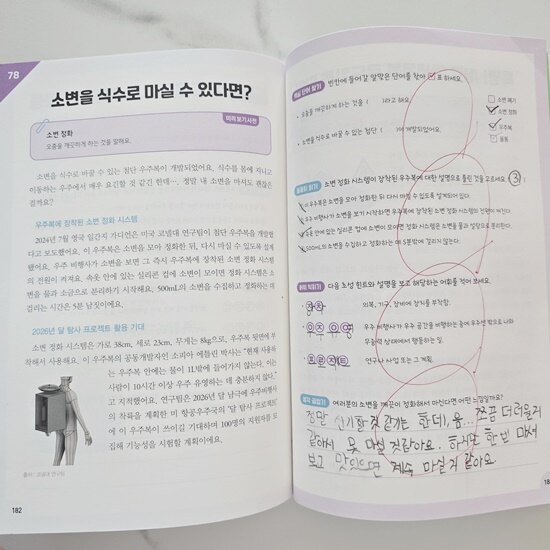 78
소변을 식수로 마실 수 있다면?
미리보기사전
소변 정화
오줌을 깨끗하게 하는 것을 말해요.
소변을 식수로 바꿀 수 있는 첨단 우주복이 개발되었어요. 식수를 몸에 지니고
이동하는 우주에서 매우 요긴할 것 같긴 한데…, 정말 내 소변을 마셔도 괜찮은
걸까요?
우주복에 장착된 소변 정화 시스템
2024년 7월 영국 일간지 가디언은 미국 코넬대 연구팀이 첨단 우주복을 개발했
다고 보도했어요. 이 우주복은 소변을 모아 정화한 뒤, 다시 마실 수 있도록 설계
됐어요. 우주 비행사가 소변을 보면 그 즉시 우주복에 장착된 소변 정화 시스템
의 전원이 켜져요. 속옷 안에 있는 실리콘 컵에 소변이 모이면 정화 시스템은 소
변을 물과 소금으로 분리하기 시작해요. 500mL의 소변을 수집하고 정화하는 데
걸리는 시간은 5분 남짓이에요.
2026년 달 탐사 프로젝트 활용 기대
소변 정화 시스템은 가로 38cm, 세로 23cm, 무게는 8kg으로, 우주복 뒷면에 부
착해서 사용해요. 이 우주복의 공동개발자인 소피아 에틀린 박사는 "현재 사용하
는 우주복 안에는 물이 1L밖에 들어가지 않는다. 이는
사람이 10시간 이상 우주 유영하는 데 충분하지 않다."
고 지적했어요. 연구팀은 2026년 달 남극에 우주비행사
의 착륙을 계획한 미 항공우주국의 '달 탐사 프로젝트'
에 이 우주복이 쓰이길 기대하며 100명의 지원자를 모
집해 기능성을 시험할 계획이에요.
출처: 코넬대 연구팀
182
핵심 단어 찾기 빈칸에 들어갈 알맞은 단어를 찾아 ✓표 하세요.
• 오줌을 깨끗하게 하는 것을 ( )라고 해요.
• 소변을 식수로 바꿀 수 있는 첨단 ( )이 개발되었어요.
소변 폐기
소변 정화
우주복
꼼꼼히 읽기 소변 정화 시스템이 장착된 우주복에 대한 설명으로 틀린 것을 고르세요. ( 3 )
① 우주복은 소변을 모아 정화한 뒤 다시 마실 수 있도록 설계되어 있다.
② 우주 비행사가 소변을 보기 시작하면 우주복에 장착된 소변 정화 시스템의 전원이 켜진다.
④ 500mL의 소변을 수집하고 정화하는 데 5분밖에 걸리지 않는다.
어휘 익히기 다음 초성 힌트와 설명을 보고 해당하는 어휘를 적어 보세요.
• 장착 의복, 기구, 장비에 장치를 부착함.
• 우주 유영 우주 비행사가 우주 공간을 비행하는 중에 우주선 밖으로 나와
무중력 상태에서 행동하는 일.
• 프로젝트 연구나 사업 또는 그 계획.
생각 곱씹기 여러분의 소변을 깨끗이 정화해서 마신다면 어떤 느낌일까요?
정말 신기할 것 같기는 한데, 음... 쪼끔 더러울거
같아서 못 마실 것 같아요. 하지만 한번 마셔
보고 맛있으면 계속 마실거 같아요.